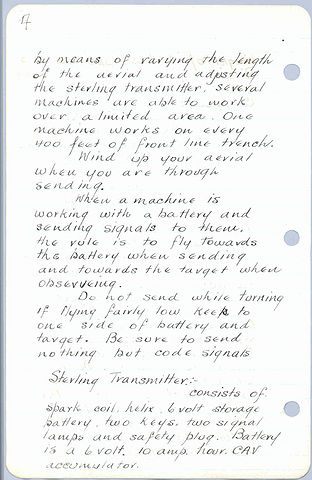 17
by means of varying the length
of the aerial and adjusting
the sterling transmitter, several
machines are able to work
over a limited area. One
machine works on every
400 feet of front line trench.
Wind up your aerial
when you are through
sending.
When a machine is
working with a battery and
sending signals to them,
the rule is to fly towards
the battery when sending
and towards the target when
observeing.
Do not send while turning
if flying fairly low keep to
one side of battery and
target. Be sure to send
nothing but code signals
Sterling Transmitter:-
consists of
spark coil, helix, 6 volt storage
battery, two keys, two signal
lamps and safety plug. Battery
is a 6 volt, 10 amp. hour. CAV
accumulator.